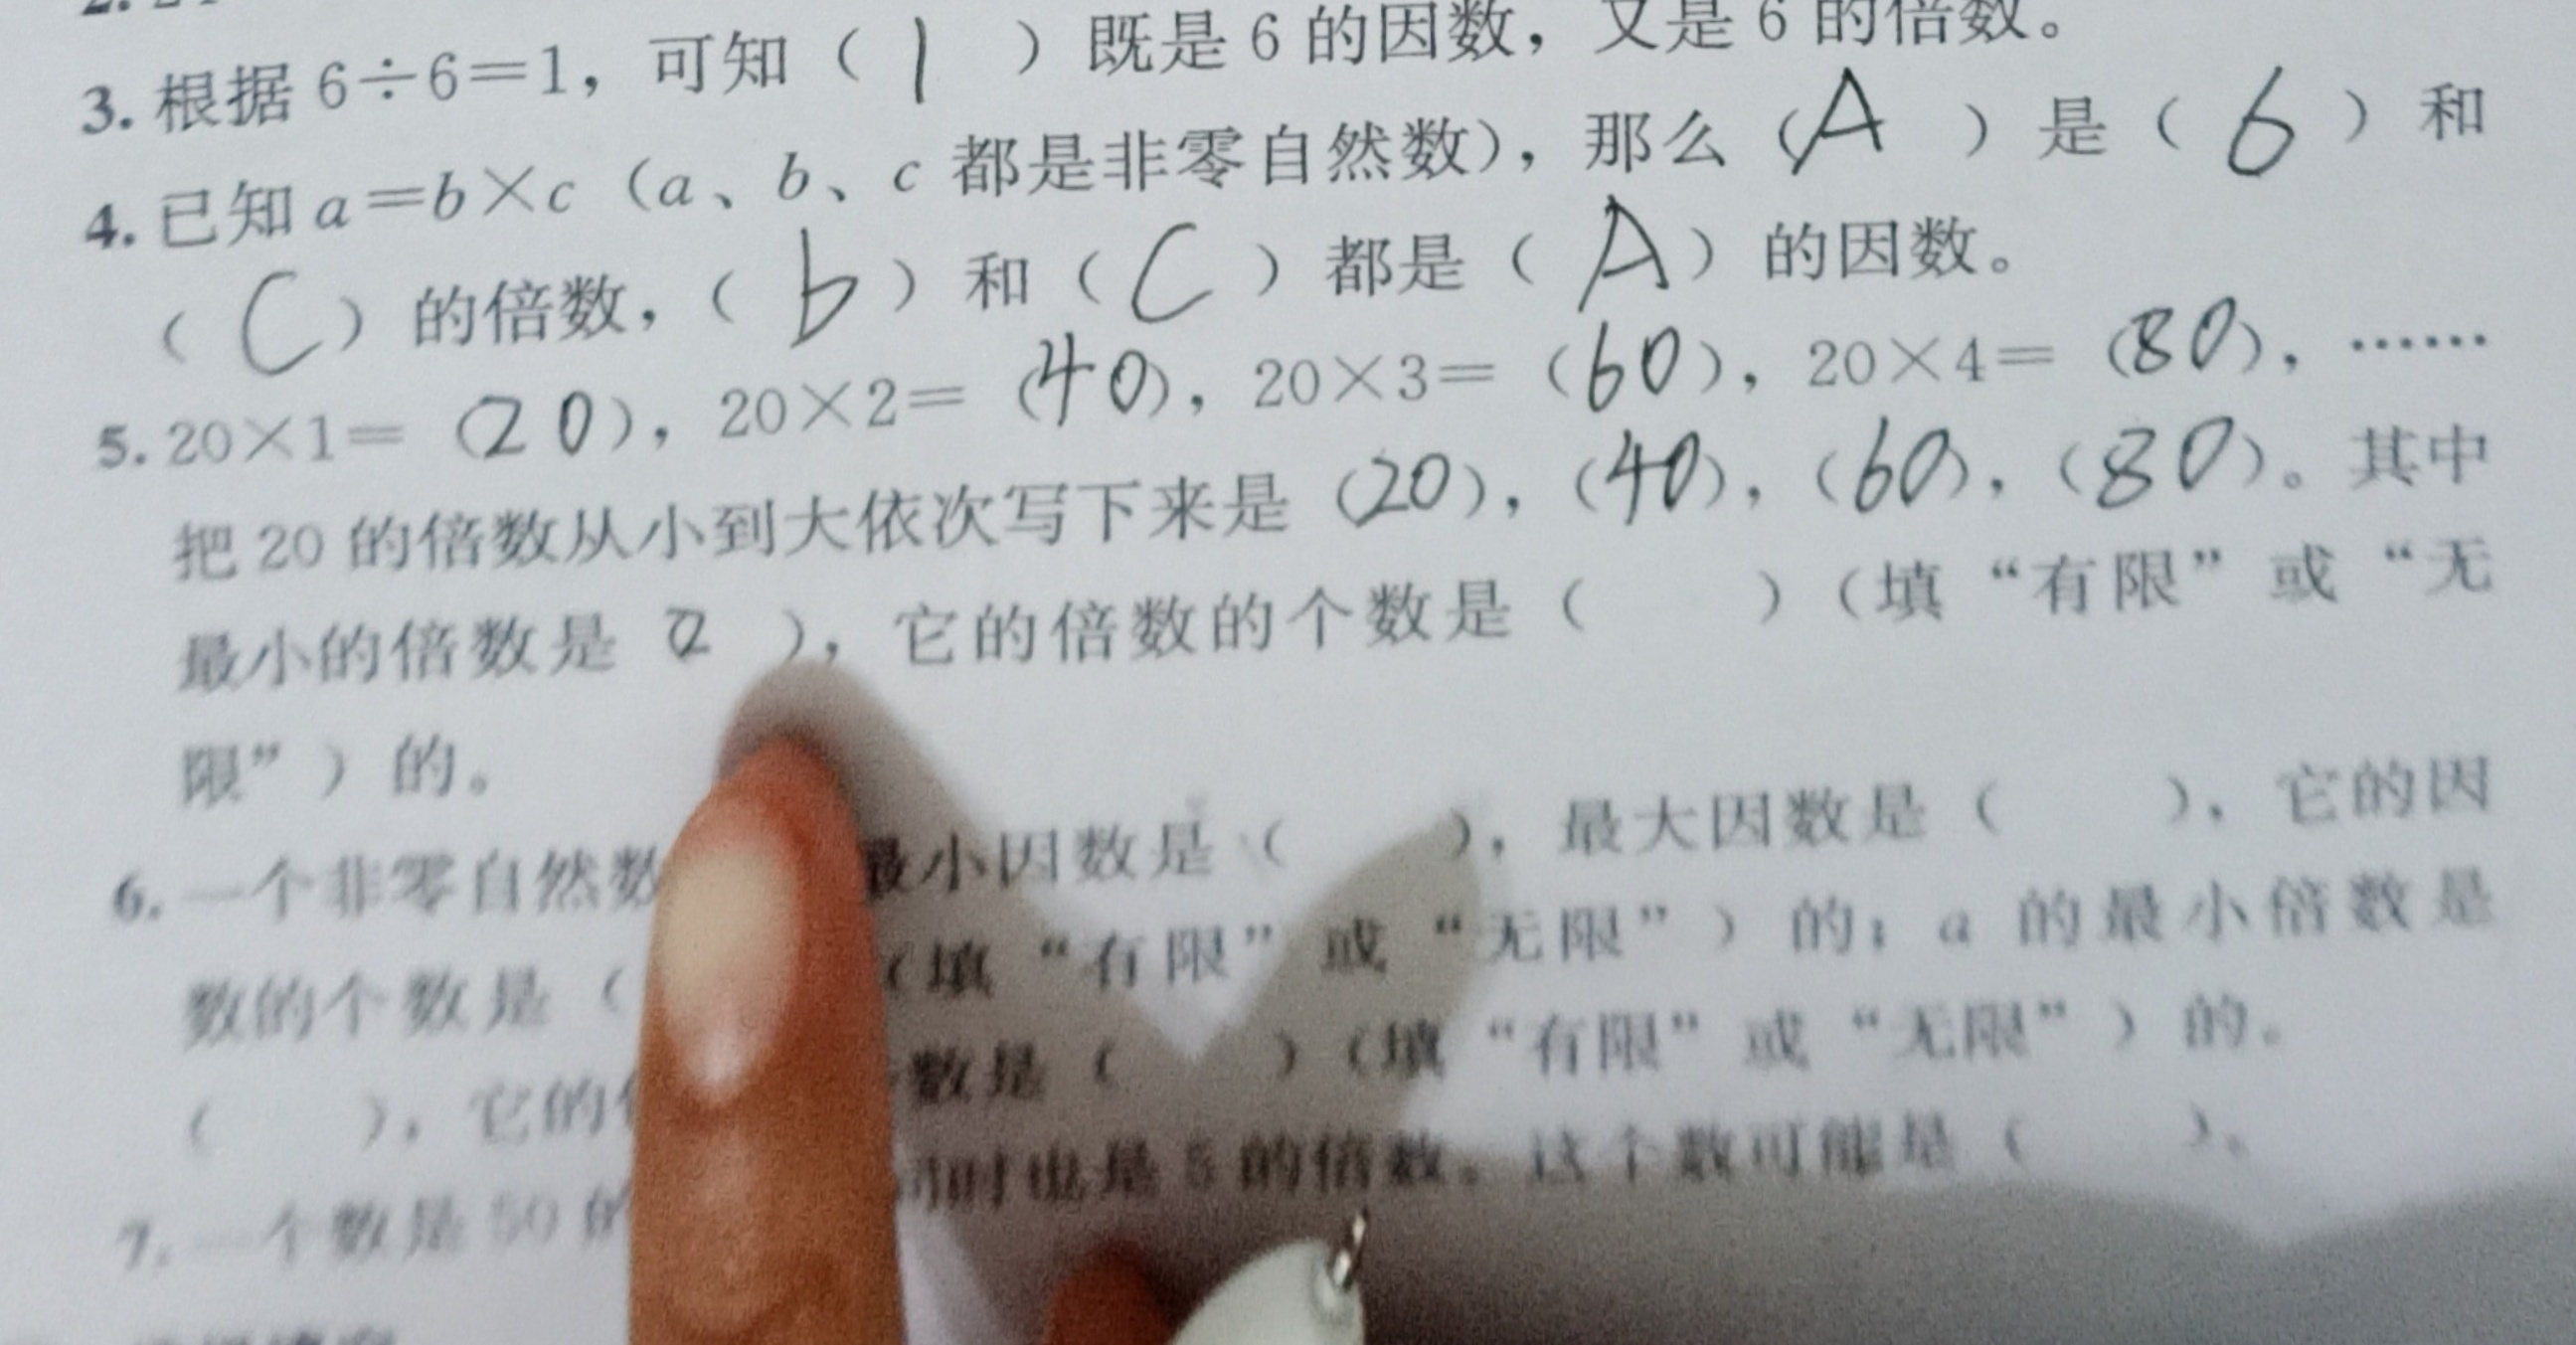 3. 根据 6÷6=1，可知（ 1 ）既是 6 的因数，又是 6 的倍数。
4. 已知 a=b×c（a、b、c 都是非零自然数），那么（A ）是（ 6 ）和
（ C ）的倍数，（ b ）和（ C ）都是（ A ）的因数。
5. 20×1=（20），20×2=（40），20×3=（60），20×4=（80），……
把 20 的倍数从小到大依次写下来是（20），（40），（60），（80）。其中
最小的倍数是 ），它的倍数的个数是（ ）（填“有限”或“无
限”）的。
6. 一个非零自然数 最小因数是（ ），最大因数是（ ），它的因
数的个数是（ （填“有限”或“无限”）的；a 的最小倍数是
（ ），它的 数是（ ）（填“有限”或“无限”）的。
7. 一个数是 50 的 同时也是 5 的倍数。这个数可能是（ ）。